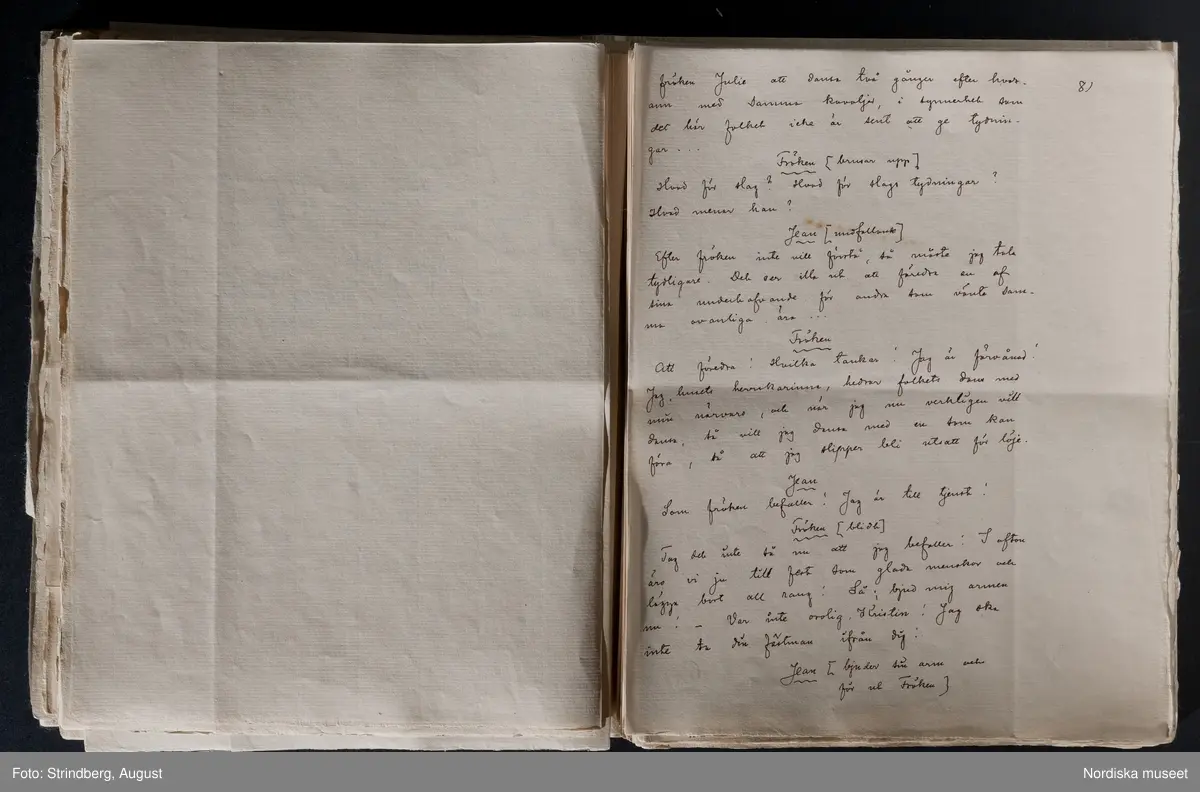 8)
fröken Julie att dansa två gånger efter hvar-
ann med samma kavaljer, i synnerhet som
det här folket icke är sent att ge tydnin-
gar ...
Fröken [brusar upp]
Hvad för slag? Hvad för slags tydningar?
Hvad menar han?
Jean [undfallande]
Efter fröken inte vill förstå, så måste jag tala
tydligare. Det ser illa ut att föredra en af
sina underhafvande för andra som vänta sam-
ma ovanliga ära ...
Fröken
Att föredra! Hvilka tankar! Jag är förvånad!
Jag, husets herrskarinna, hedrar folkets dans med
min närvaro, och när jag nu verkligen vill
dansa, så vill jag dansa med en som kan
föra, så att jag slipper bli utsatt för löje.
Jean
Som fröken befaller! Jag är till tjenst!
Fröken [blidt]
Tag det inte så nu att jag befaller! I afton
äro vi ju till fest som glada menskor och
lägga bort all rang! Så, bjud mig armen
nu! – Var inte orolig, Kristin! Jag ska
inte ta din fästman ifrån dig!
Jean [bjuder sin arm och
för ut Fröken]
Foto: Strindberg, August
Nordiska museet